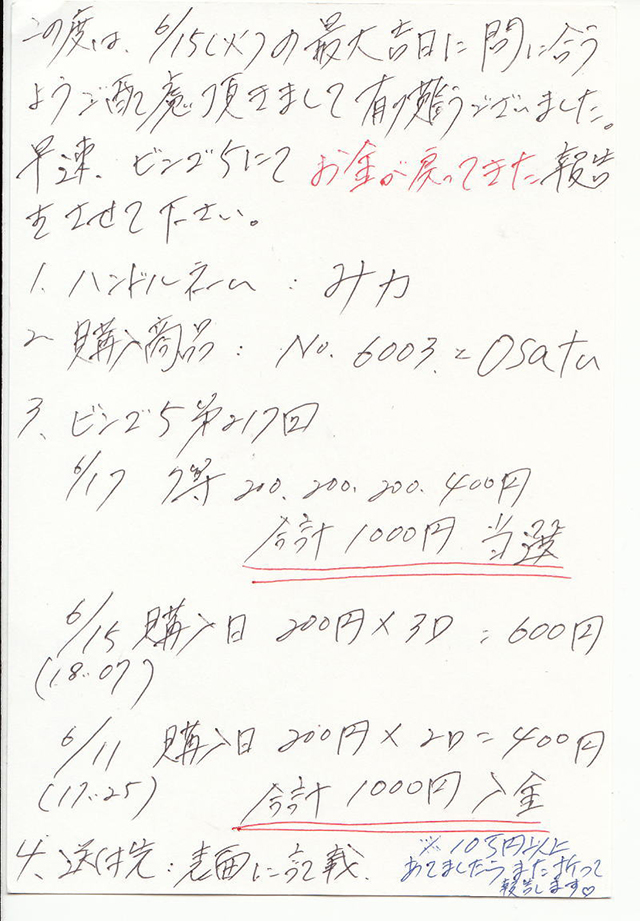 この度は、6/15(火)の最大吉日に間に合う
ようご配慮頂きまして有り難うございました。
早速、ビンゴ5にてお金が戻ってきた報告
をさせて下さい。
1. ハンドルネーム : みカ
2 購入商品 : No. 6003. = Osatu
3、ビンゴ5 第217回
6/17 7等 200、200、200、400円
合計 1000円 当選
6/15 購入日 200円×3口 = 600円
(18:07)
6/11 購入日 200円×2口 = 400円
(17:25) 合計 1000円 入金
4、送付先 : 表面に記載.
※ 10万円以上
あてましたらまた折って
報告します♡